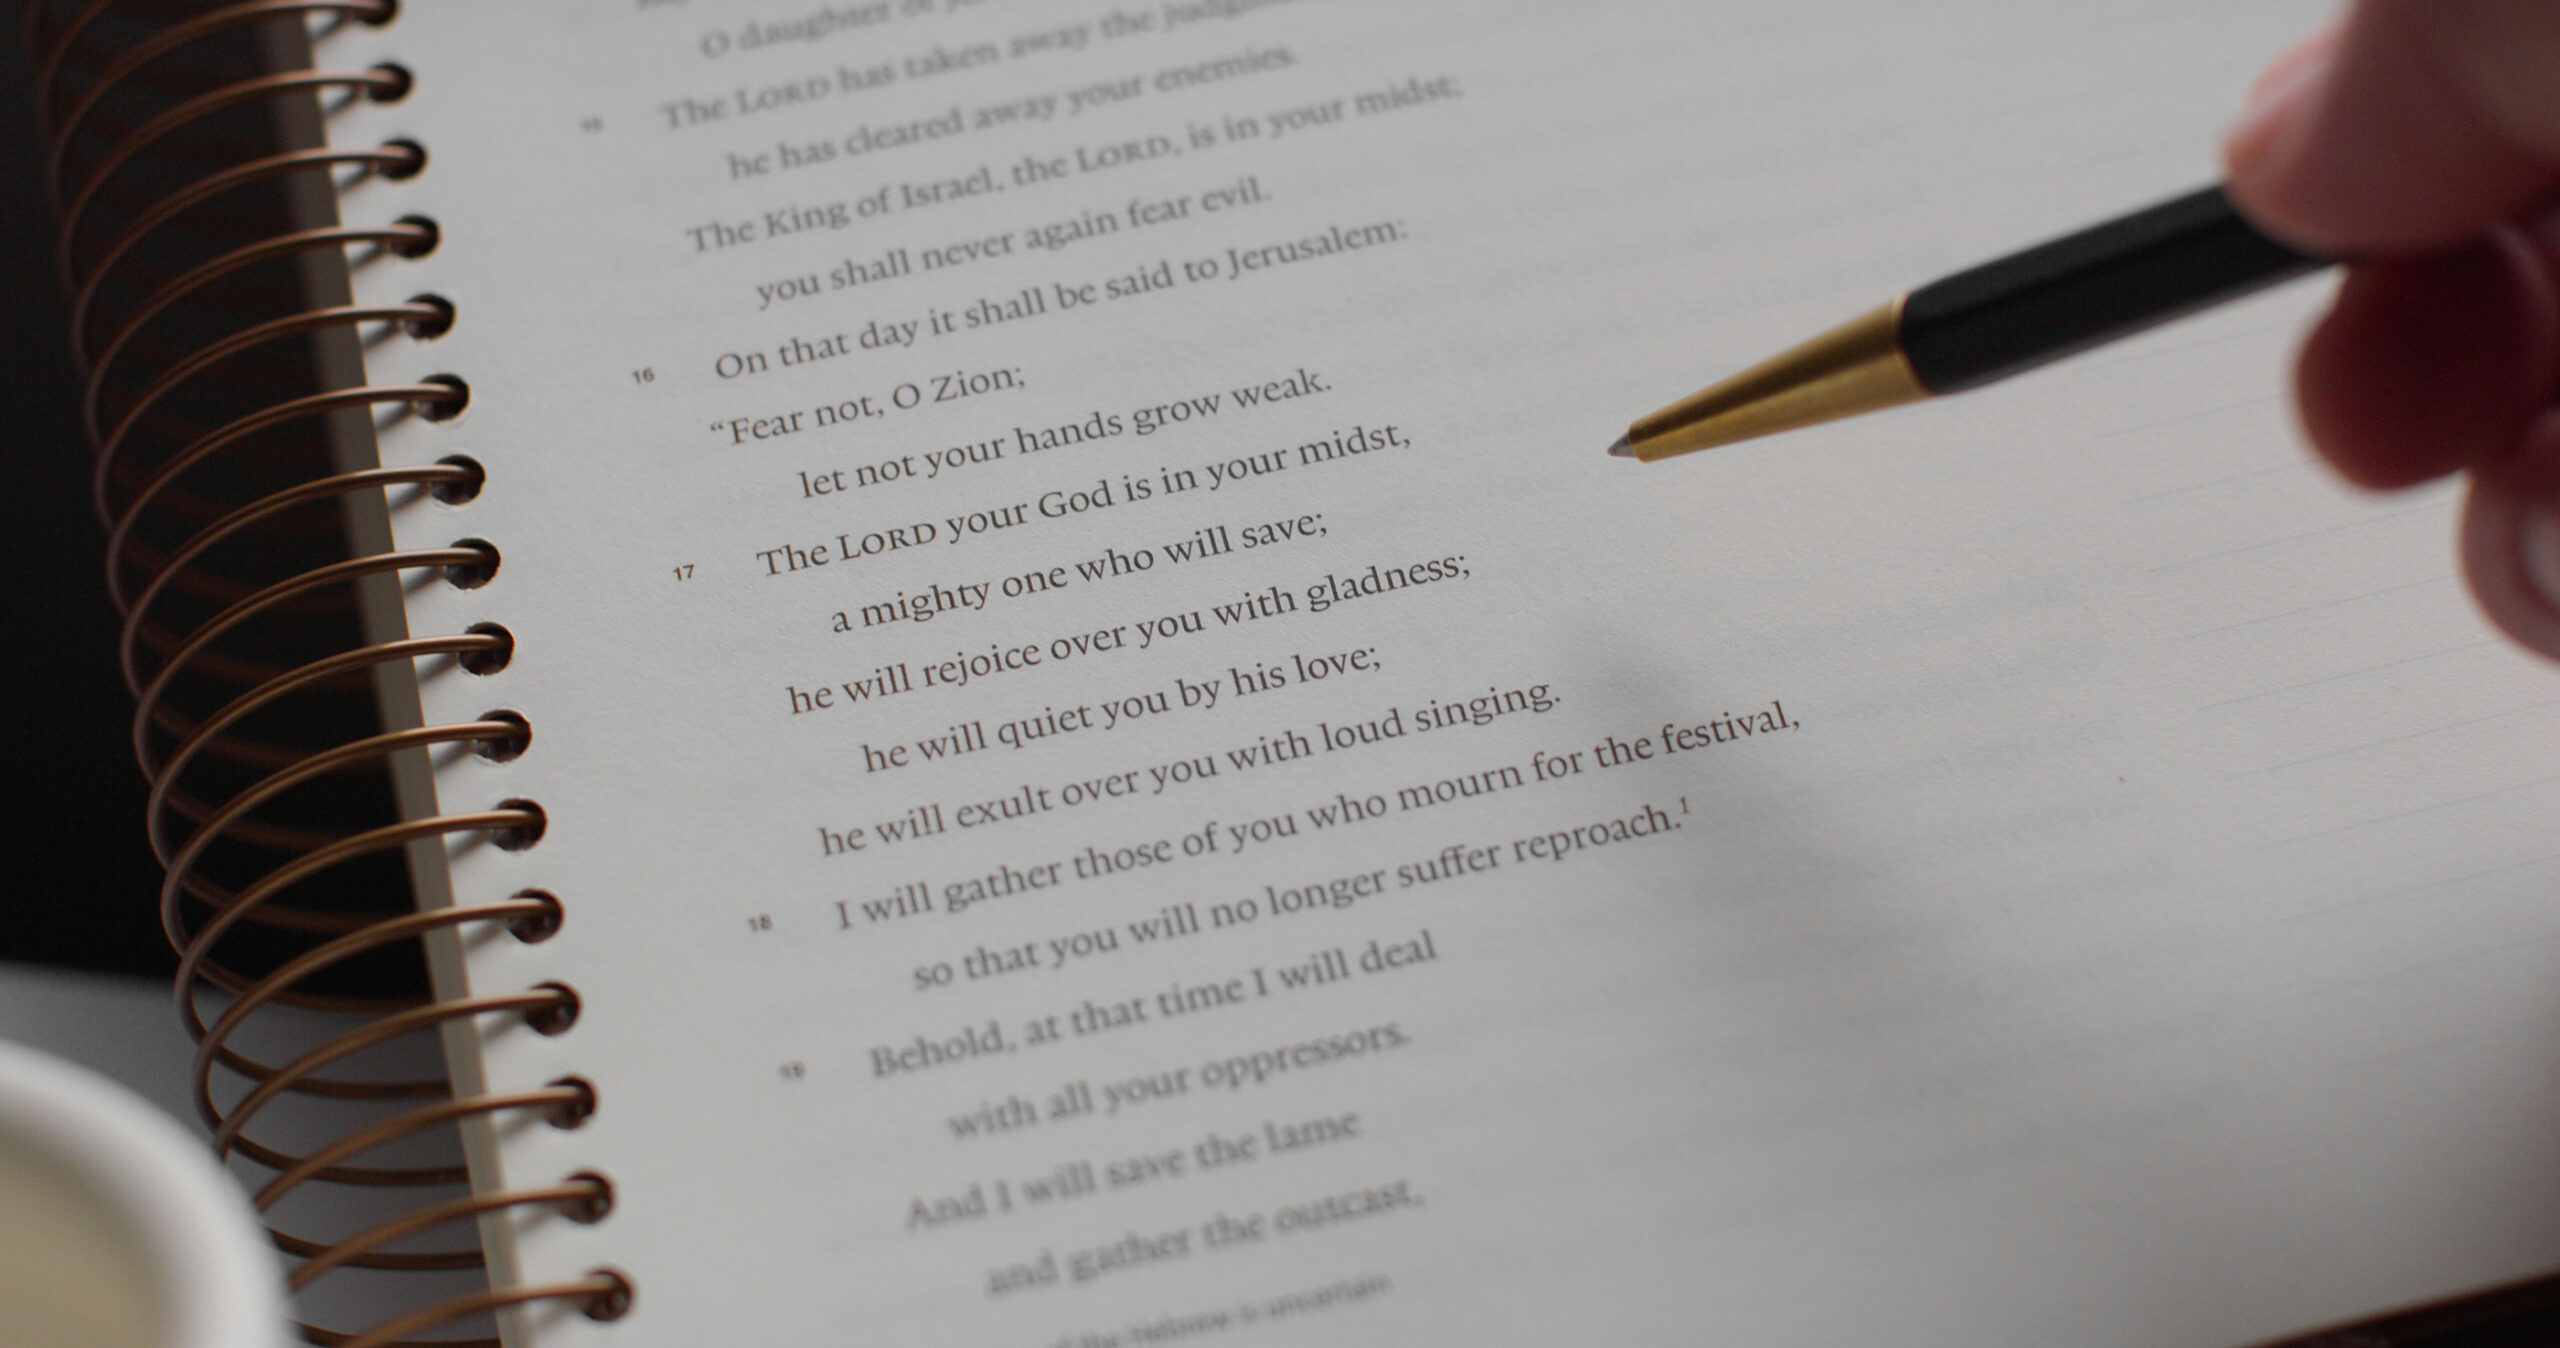 O daughter of
15 The LORD has taken away the
he has cleared away your enemies.
The King of Israel, the LORD, is in your midst;
you shall never again fear evil.
16 On that day it shall be said to Jerusalem:
“Fear not, O Zion;
let not your hands grow weak.
17 The LORD your God is in your midst,
a mighty one who will save;
he will rejoice over you with gladness;
he will quiet you by his love;
he will exult over you with loud singing.
18 I will gather those of you who mourn for the festival,
so that you will no longer suffer reproach.1
19 Behold, at that time I will deal
with all your oppressors.
And I will save the lame
and gather the outcast,
Hebrew is uncertain